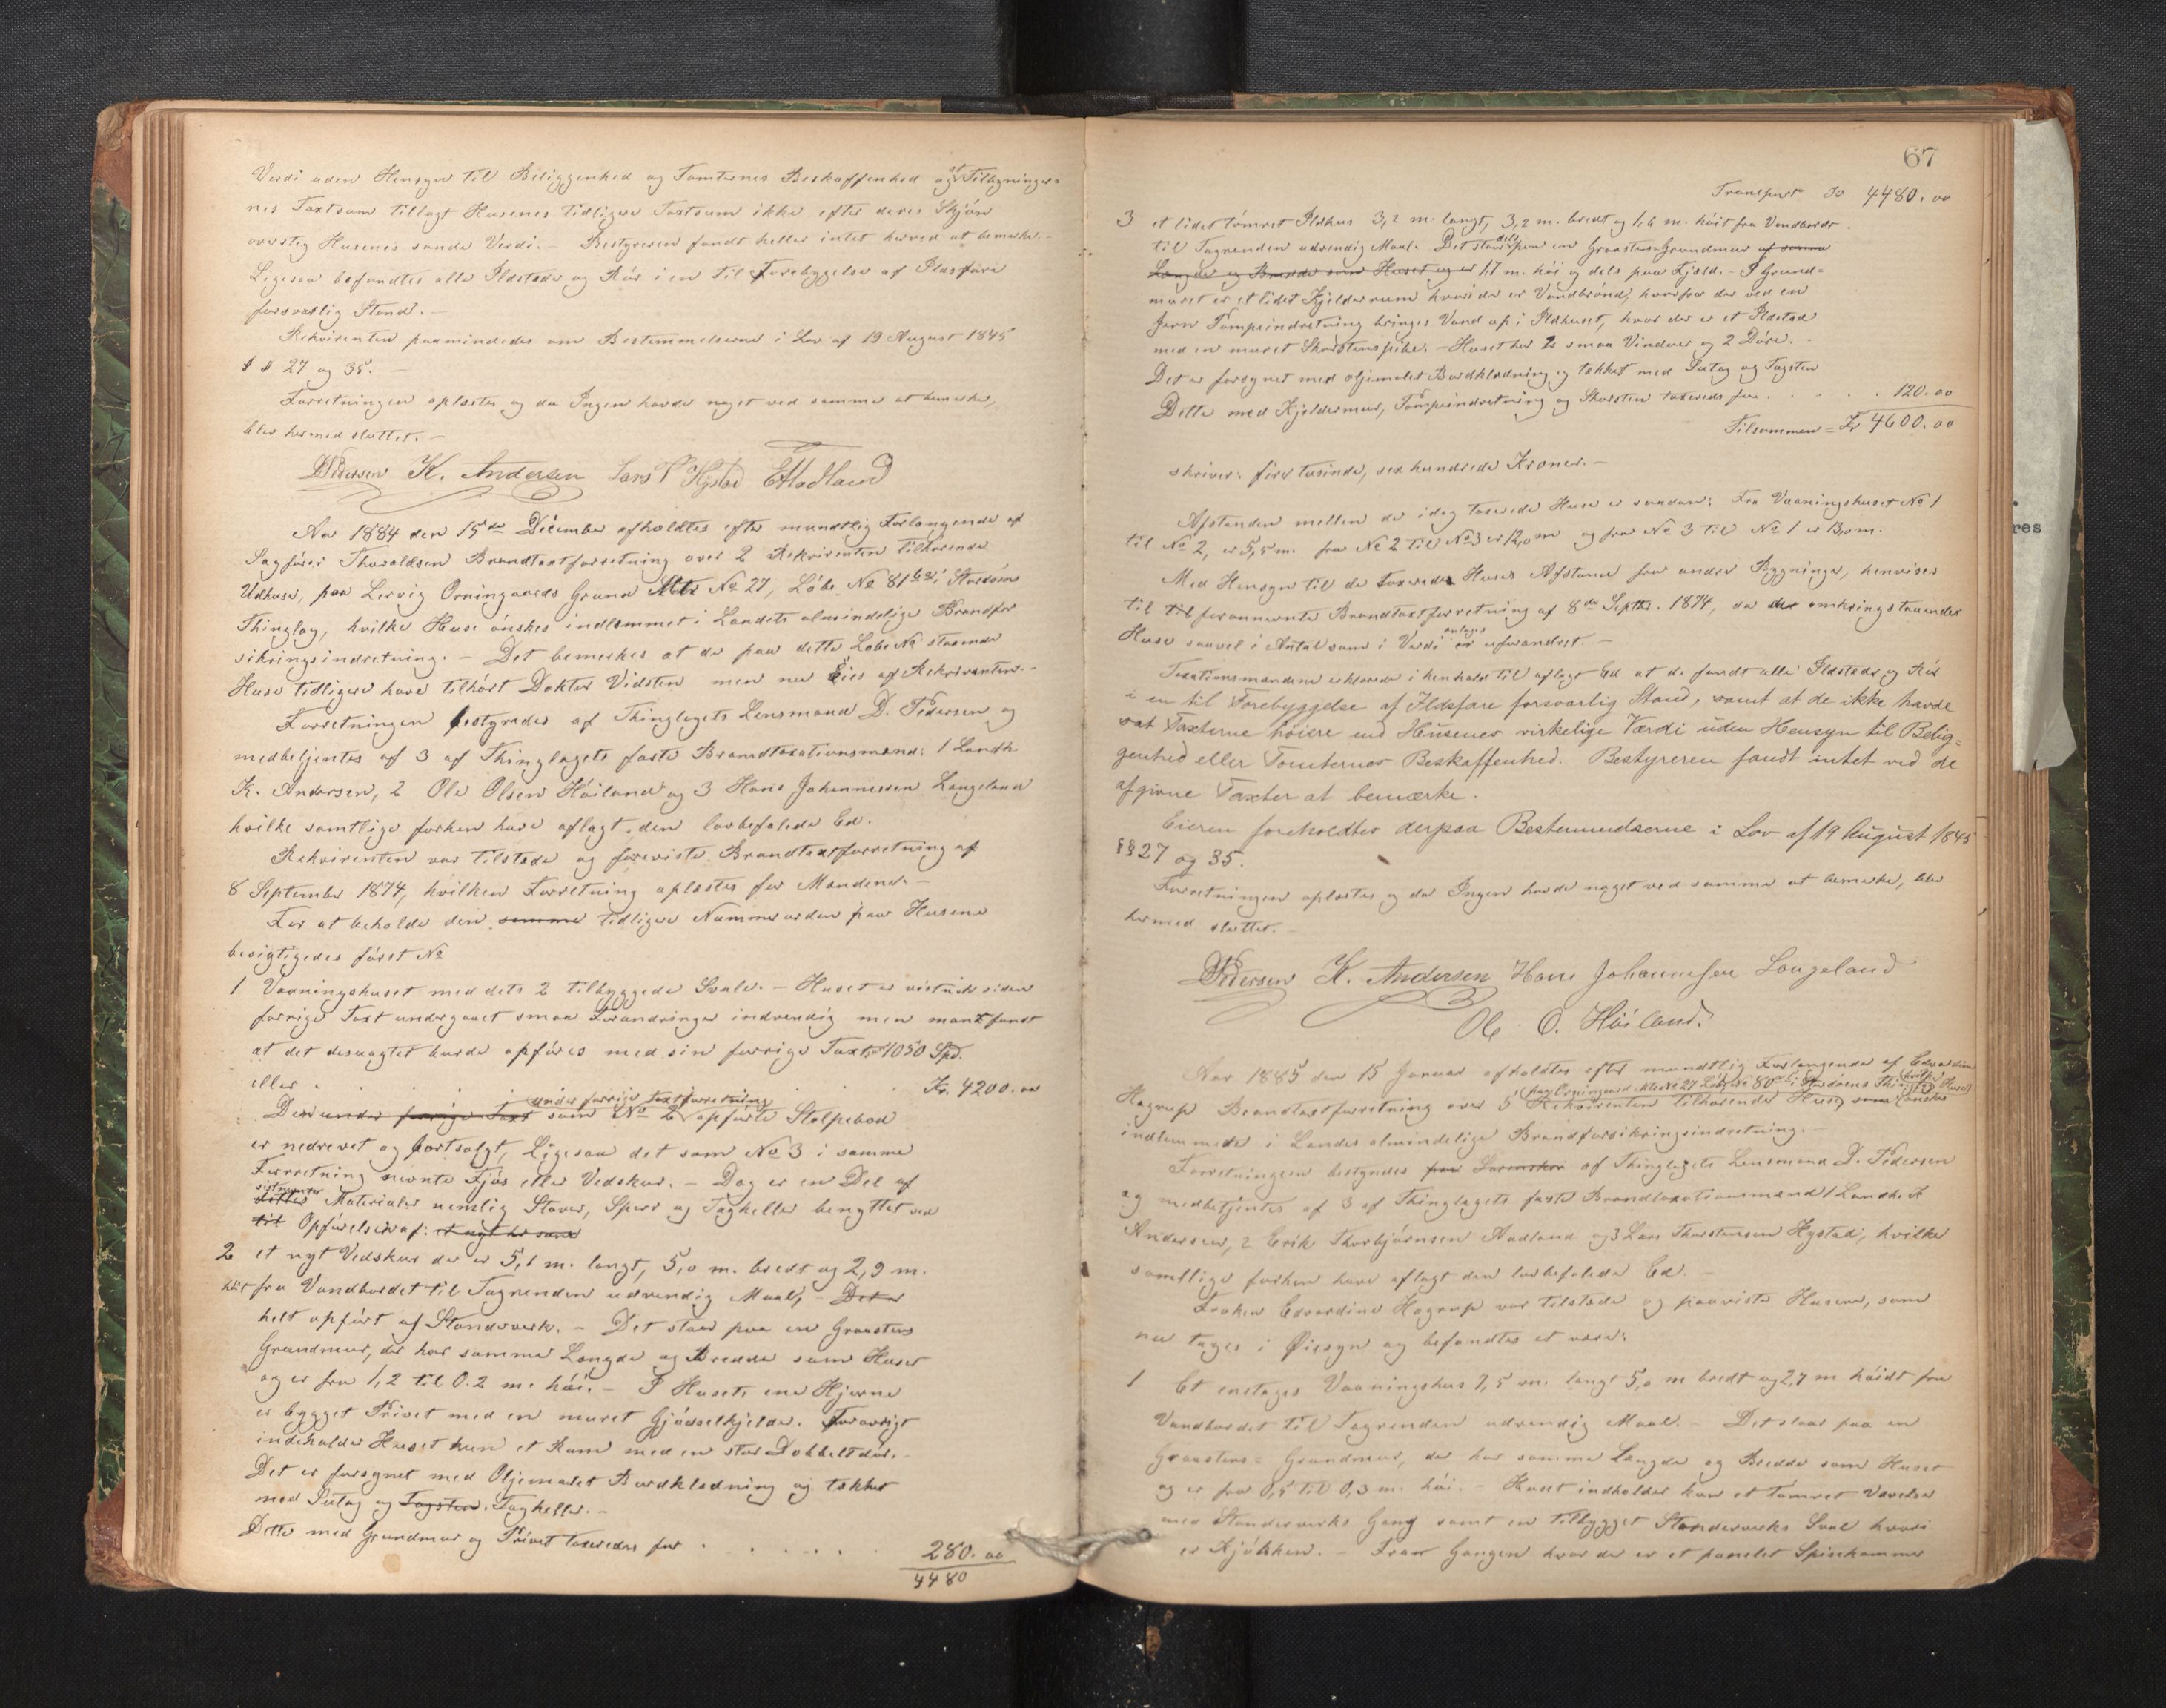 Verdi uden Hensyn til Beliggenhed og Tomternes Beskaffenhed og at Tilbygninger-
nes Taxtsum tillagt Husenes tidligere Taxtsum ikke efter deres Skjön
oversteg Husenes sande Verdi. - Bestyreren fandt heller intet herved at bemerke. -
Ligesaa befandtes alle Ildsteder og Rör i en til Forebyggelse af Ildsfare
forsvarlig Stand. -
Rekvirenten paamindedes om Bestemmelserne i Lov af 19 August 1845
§ § 27 og 35. -
Forretningen oplæstes og da Ingen havde noget ved samme at bemerke,
blev hermed sluttet. -
D Pedersen K. Andersen Lars T Hystad E Aadland
Aar 1884 den 15de December afholdtes efter mundtlig Forlangende af
Sagförer Thoraldsen Brandtaxtforretning over 2 Rekvirenten tilhörende
Udhuse, paa Lervig Orningaards Grund Mtr No 27, Löbe No 81 Stordöens
Thinglag, hvilke Huse önskes indlemmet i Landets almindelige Brandfor
sikringsindretning. - Det bemerkes at de paa dette Löbe No staaende
Huse tidligere have tilhört Doktor Vidsteen men nu Eies af Rekvirenten. -
Forretningen bestyredes af Thinglagets Lensmand D. Pedersen og
medbetjentes af 3 af Thinglagets faste Brandtaxationsmænd: 1 Landh.
K. Andersen, 2 Ole Olsen Höiland og 3 Hans Johannessen Langeland
hvilke samtlige forhen have aflagt den lovbefalede Ed.
Rekvirenten var tilstede og foreviste Brandtaxtforretning af
8 September 1874, hvilken Forretning oplæstes for Mændene. -
For at beholde den samme tidligere Nummerorden paa Husene
besigtigedes först No
1 Vaaningshuset med dets 2 tilbyggede Svale. - Huset er vistnok siden
forrige Taxt undergaaet smaa Forandringer indvendig men man fandt
at det desuagtet burde opföres med sin forrige Taxt 1050 Spd.
eller . . . . . . Kr. 4200.00
Den under forrige Taxt som under forrige Taxtforretning No 2 opförte Stolpebod
er nedrevet og bortsolgt, Ligesaa det som No 3 i samme
Forretning nevnte Fjös eller Vedskur. - Dog er en Del af
dettes sistnevntes Materialer nemlig Stover, Sperr og Taghelle benyttet ved
til Opförelsen af: et nyt
2 et nyt Vedskur der er 5,1 m. langt, 5,0 m. bredt og 2,9 m.
höit fra Vandbordet til Tagrenden udvendig Maal, - Det er
helt opfört af Standverk. - Det staar paa en Graastens
Grundmur, der har samme Længde og Bredde som Huset
og er fra 1,2 til 0.2 m. höi. - I Husets ene Hjerne
er bygget Privet med en muret Gjödselkjelder. Foravrigt
indeholder Huset kun et Rum med en stor Dobbeltdör. -
Det er forsynet med Oljemalet Bordklædning og tækket
med Sutag og Tagsten. Taghelle. -
Dette med Grundmur og Privet taxeredes for . . . . . 280.00
4480
67
Transport Kr 4480.00
3 et lidet tömret Ildhus 3,2 m. langt, 3,2 m. bredt og 1,6 m. höit fra Vandbordet
til Tagrenden udvendig Maal. Det staar dels paa en Graastens Grundmur af samme
Længde og Bredde som Huset og er 1,7 m. höi og dels paa Fjæld. - I Grund-
muret er et lidet Kjelderrum hvori der er Vandbrönd, hvorfra der ved en
Jern Pompeindretning bringes Vand op i Ildhuset, hvor der er et Ildsted
med en muret Skorstenspibe. - Huset har 2 smaa Vinduer og 2 Döre. -
Det er forsynet med oljemalet Bordklædning og tækket med Sutag og Tagsten
Dette med Kjeldermur, Pompeindretning og Skorsten taxeredes for . . . . . 120.00
Tilsammen = Kr 4600.00
skriver: fire tusinde, sex hundrede Kroner. -
Afstanden mellem de idag taxerede Huse er saadan: Fra Vaaningshuset No 1
til No 2, er 5,5 m. fra No 2 til No 3 er 12,0 m og fra No 3 til No 1 er 13,0 m.
Med Hensyn til de taxerede Huses Afstand fra andre Bygninger, henvises
til til forannevnte Brandtaxtforretning af 8de Septbr. 1874, da der omkringstaaende
Huse saavel i Antal som i Verdi er antages uforandret. -
Taxationsmændene erklærede i henhold til aflagt Ed at de fandt alle Ildsteder og Rör
i en til Forebyggelse af Ildsfare forsvarlig Stand, samt at de ikke havde
sat Taxterne höiere end Husenes virkelige Værdi uden Hensyn til Belig-
genhed eller Tomternes Beskaffenhed. Bestyreren fandt intet ved de
afgivne Taxter at bemærke.
Eieren foreholdtes derpaa Bestemmelserne i Lov af 19 August 1845
§§ 27 og 35.
Forretningen oplæstes og da Ingen havde noget ved samme at bemerke, blev
hermed sluttet. -
D Pedersen K. Andersen Hans Johannessen Langeland
Ole O. Höiland.
Aar 1885 den 15 Januar afholdtes efter mundtlig Forlangende af Edvardine
Hagrup Brandtaxtforretning over 5 (paa Orningaard Mtr No 27 Löbe No 80 i Stordöens Thinglag) Rekvirenten tilhörende Huse, som (hvilke Huse) önskes
indlemmede i Landes almindelige Brandforsikringsindretning. -
Forretningen bestyredes af Thinglagets Lensmand D. Pedersen
og medbetjentes af 3 af Thinglagets faste Brandtaxationsmænd 1 Landh. K
Andersen, 2 Erik Thorbjörnsen Aadland og 3 Lars Thorstensen Hystad, hvilke
samtlige forhen have aflagt den lovbefalede Ed. -
Fröken Edvardine Hagrup var tilstede og paaviste Husene, som
nu toges i Øiesyn og befandtes at være:
1 Et enetages Vaaningshus 7,5 m. langt 5,0 m bredt og 2,7 m höidt fra
Vandbordet til Tagrenden udvendig Maal. - Det staar paa en
Graastens- Grundmur, der har samme Længde og Bredde som Huset
og er fra 0,5 til 0,3 m. höi. - Huset indholder kun et tömret Værelse
med Standverks Gang samt en tilbygget Standverks Sval hvori
er Kjökken. - Fra Gangen hvor der er et panelet Spisekammer